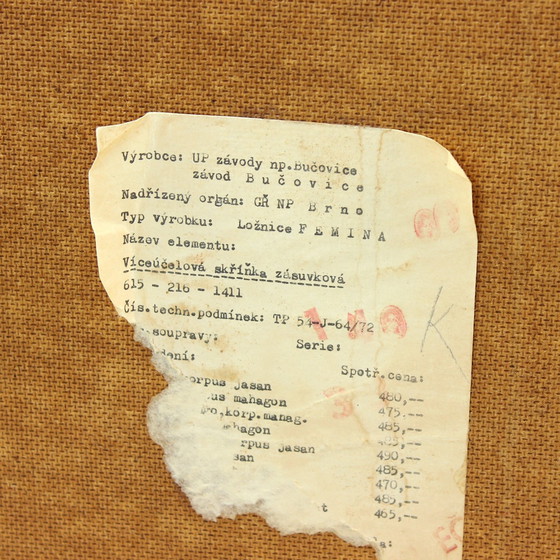 Výrobce: UP závody np.Bučovice
závod B u č o v i c e
Nadřízený orgán: GŘ NP B r n o
Typ výrobku: Ložnice F E M I N A
Název elementu:
Víceúčelová skříňka zásuvková
615 - 216 - 1411
čís.techn.podmínek: TP 54-J-64/72
soupravy: Serie:
dení:
Spotř.cena:
korpus jasan 480,--
pus mahagon 475,--
korp.mahag. 485,--
hagon
rpus jasan 490,--
san 485,--
470,--
485,--
t 465,--
K